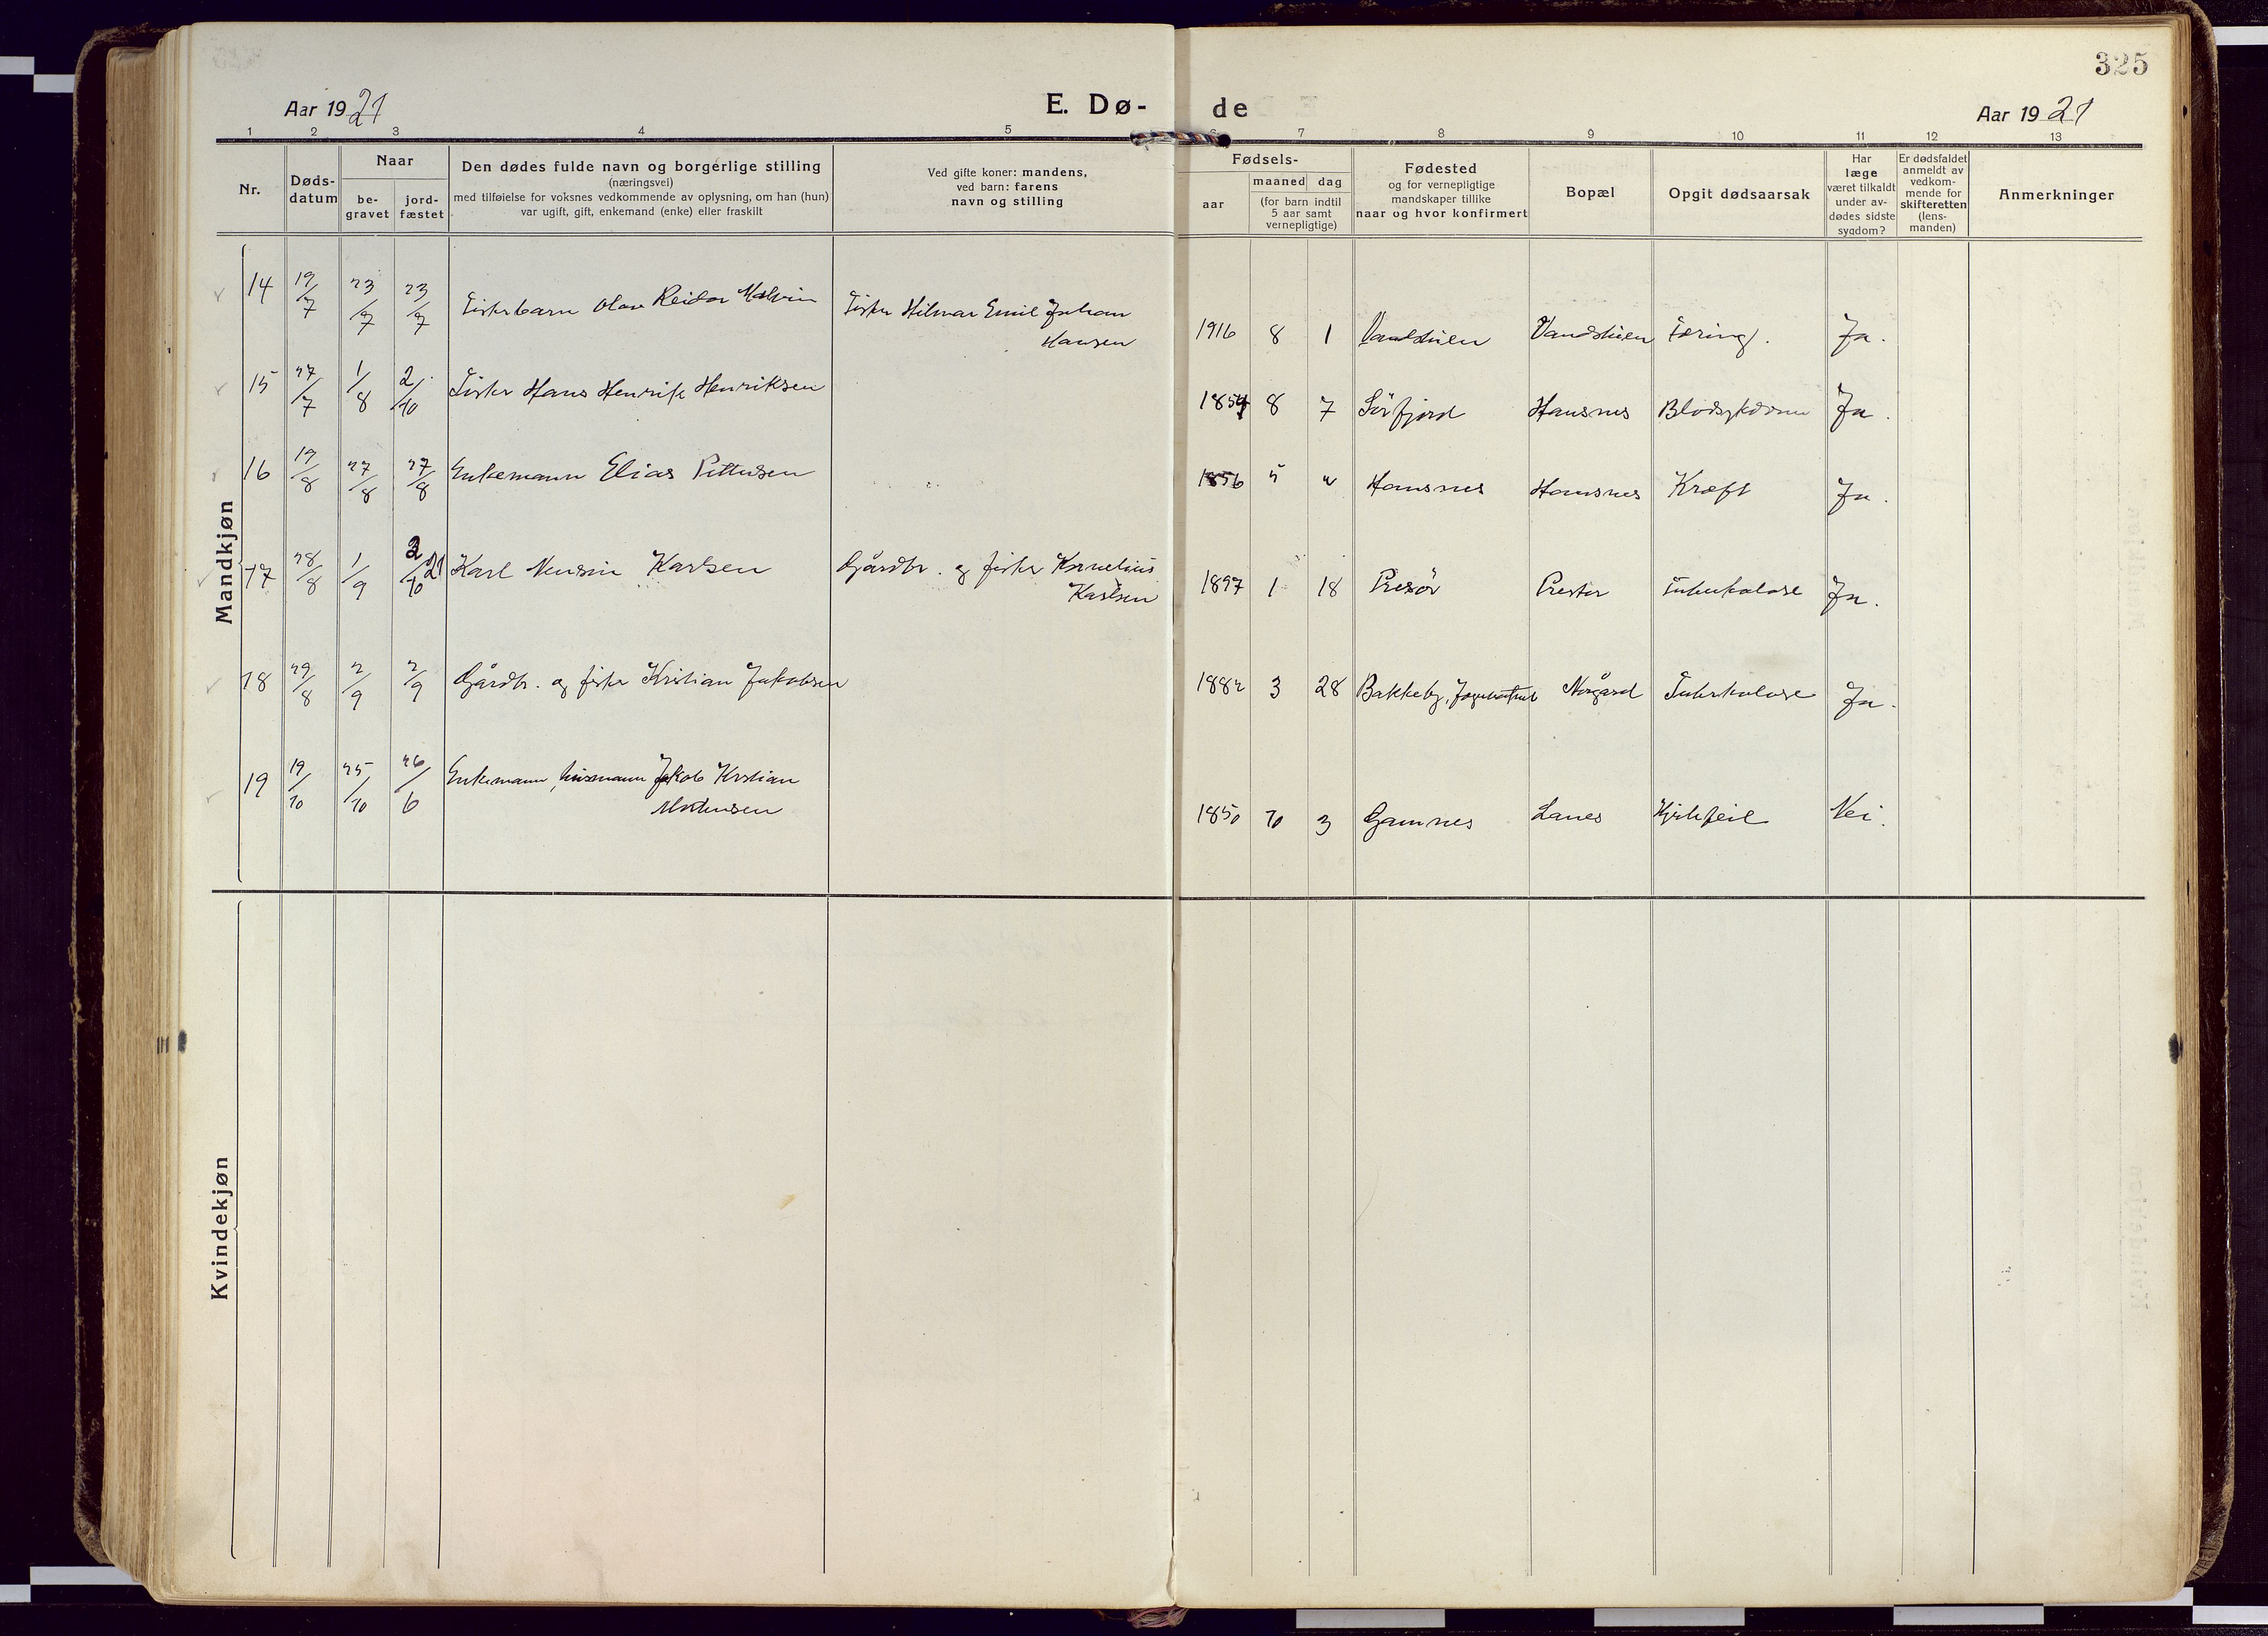 325
Aar 1921
E. Dø-
de
Aar 1921
1 2 3 4 5 6 7 8 9 10 11 12 13
Nr.
Døds-
datum
Naar
be-
gravet
jord-
fæstet
Den dødes fulde navn og borgerlige stilling
(næringsvei)
med tilføielse for voksnes vedkommende av oplysning, om han (hun)
var ugift, gift, enkemand (enke) eller fraskilt
Ved gifte koner: mandens,
ved barn: farens
navn og stilling
Fødsels-
aar
maaned dag
(for barn indtil
5 aar samt
vernepligtige)
Fødested
og for vernepligtige
mandskaper tillike
naar og hvor konfirmert
Bopæl
Opgit dødsaarsak
Har
læge
været tilkaldt
under av-
dødes sidste
sygdom?
Er dødsfaldet
anmeldt av
vedkom-
mende for
skifteretten
(lens-
manden)
Anmerkninger
Mandkjøn
14 19/7 23/7 23/7 Fiskerbarn Olav Reidar Halvin Fisker Hilmar Emil Johan
Hansen
1916 8 1 Vandstuen Vandstuen Tæring. Ja.
15 27/7 1/8 2/10 Fisker Hans Henrik Henriksen 1854 8 7 Sörfjord Hansnes Ja.
16 19/8 27/8 27/8 Enkemann Elias Pettersen 1856 5 Hansnes Hansnes Kræft Ja.
17 28/8 1/9 2/10 21 Karl Karlsen Gårdbr. og fisker Kornelius
Karlsen
1897 1 18 Tuberkulose Ja.
18 29/8 2/9 2/9 Gårdbr. og fisker Kristian Jakobsen 1882 3 28 Bakkeby, Norgård Tuberkulose Ja.
19 19/10 25/10 26/6 Enkemann, husmann Jakob Kristian
Mortensen
1850 10 3 Gamnes Lanes Hjertefeil Nei.
Kvindekjøn